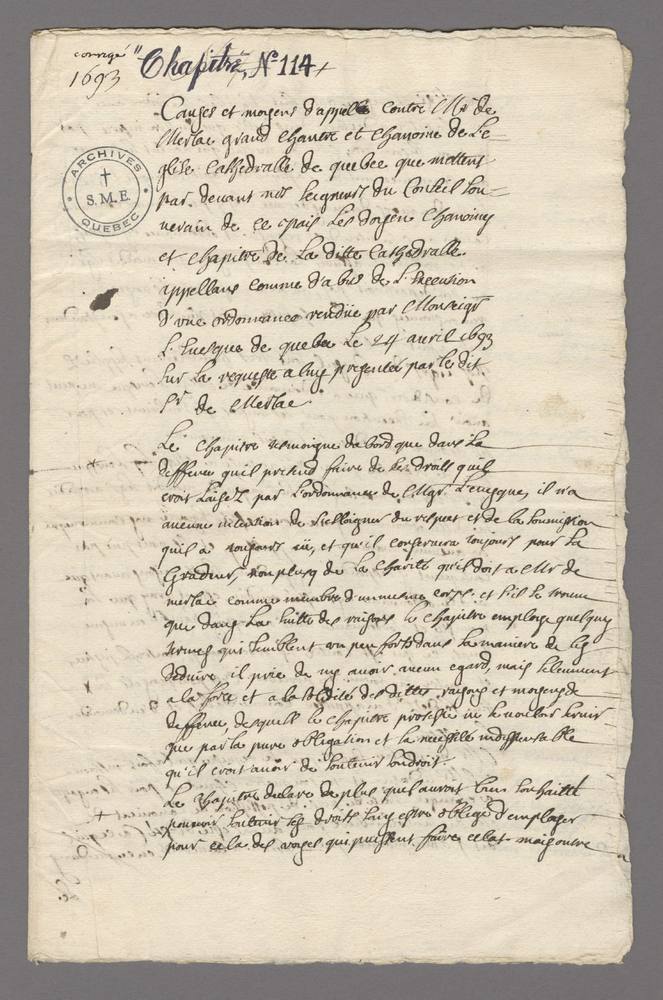 corrigé "
1693 Chapitre, N° 114 +
ARCHIVES
S.M.E.
QUEBEC
Causes et moyens d'appelle contre Mr de
Merlac grand Chantre et Chanoine de L'e-
glise Cathedralle de quebec que mettent
par devant nos seigneurs du Conseil sou-
verain de ce pais Les doyen Chanoines
et chapitre de La ditte Cathedralle
appellans comme d'abus de L'execusion
d'une ordonnance rendüe par Monseigr
L'Evesque de quebec Le 24 avril 1693
sur La requeste a luy presentée par le dit
Sr de Merlac
Le Chapitre tesmoigne dabord que dans La
deffence quil pretend faire de ses droits quil
croit Laisez par L'ordonnance de Mgr L'evesque, il n'a
aucune intention de s'esloigner du respect et de la soumission
quil a tousjours eü, et qu'il conservera tousjours pour Sa
Grandeur, non plus de La Charité qu'il doit a Mr de
merlac comme membre d'un mesme corps. et s'il se trouve
que dans La suitte des raisons le Chapitre employe quelques
termes qui semblent un peu forts dans la maniere de les
deduire, il prie de ny avoir aucun egard, mais seulement
a la force et a la solidité des dittes raisons et moyens de
deffence desquels le Chapitre proteste ne se vouloir servir
que par la pure obligation et la necessité indispensable
qu'il croit avoir de soutenir son droit.
Le Chapitre declare de plus quil auroit bien souhaitté
pouvoir soutenir ses droits sans estre obligé d'employer
pour cela des voyes qui puissent faire eclat mais outre